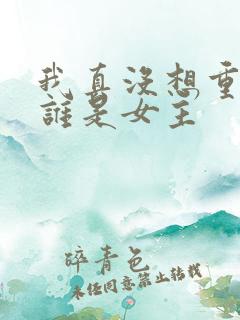 我真没想重
誰是女主
碎青色
未经同意禁止转载